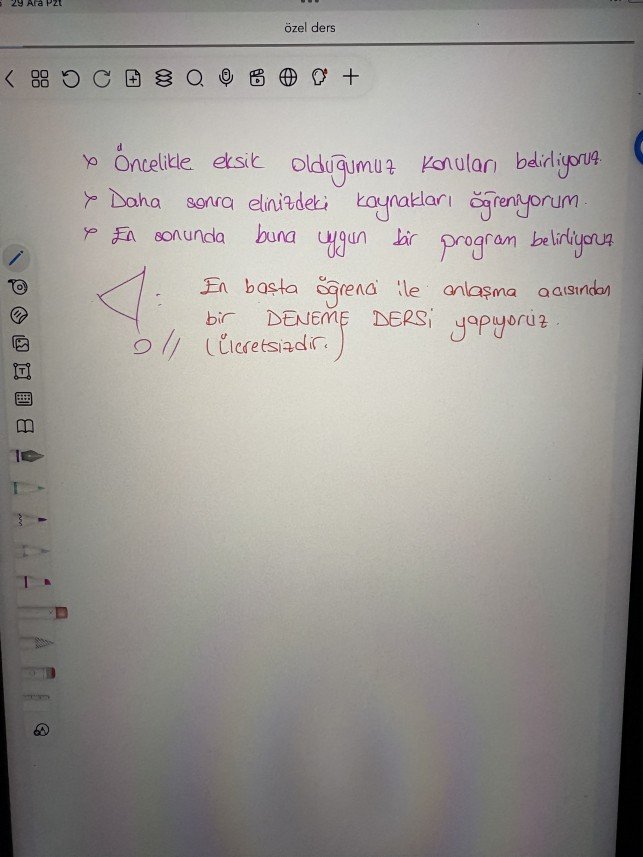 29 Ara Pzt
özel ders
Öncelikle eksik olduğumuz konuları belirliyoruz.
Daha sonra elinizdeki kaynakları öğreniyorum.
En sonunda buna uygun bir program belirliyoruz
: En başta öğrenci ile anlaşma açısından
bir DENEME DERSİ yapıyoruz.
(Ücretsizdir.)